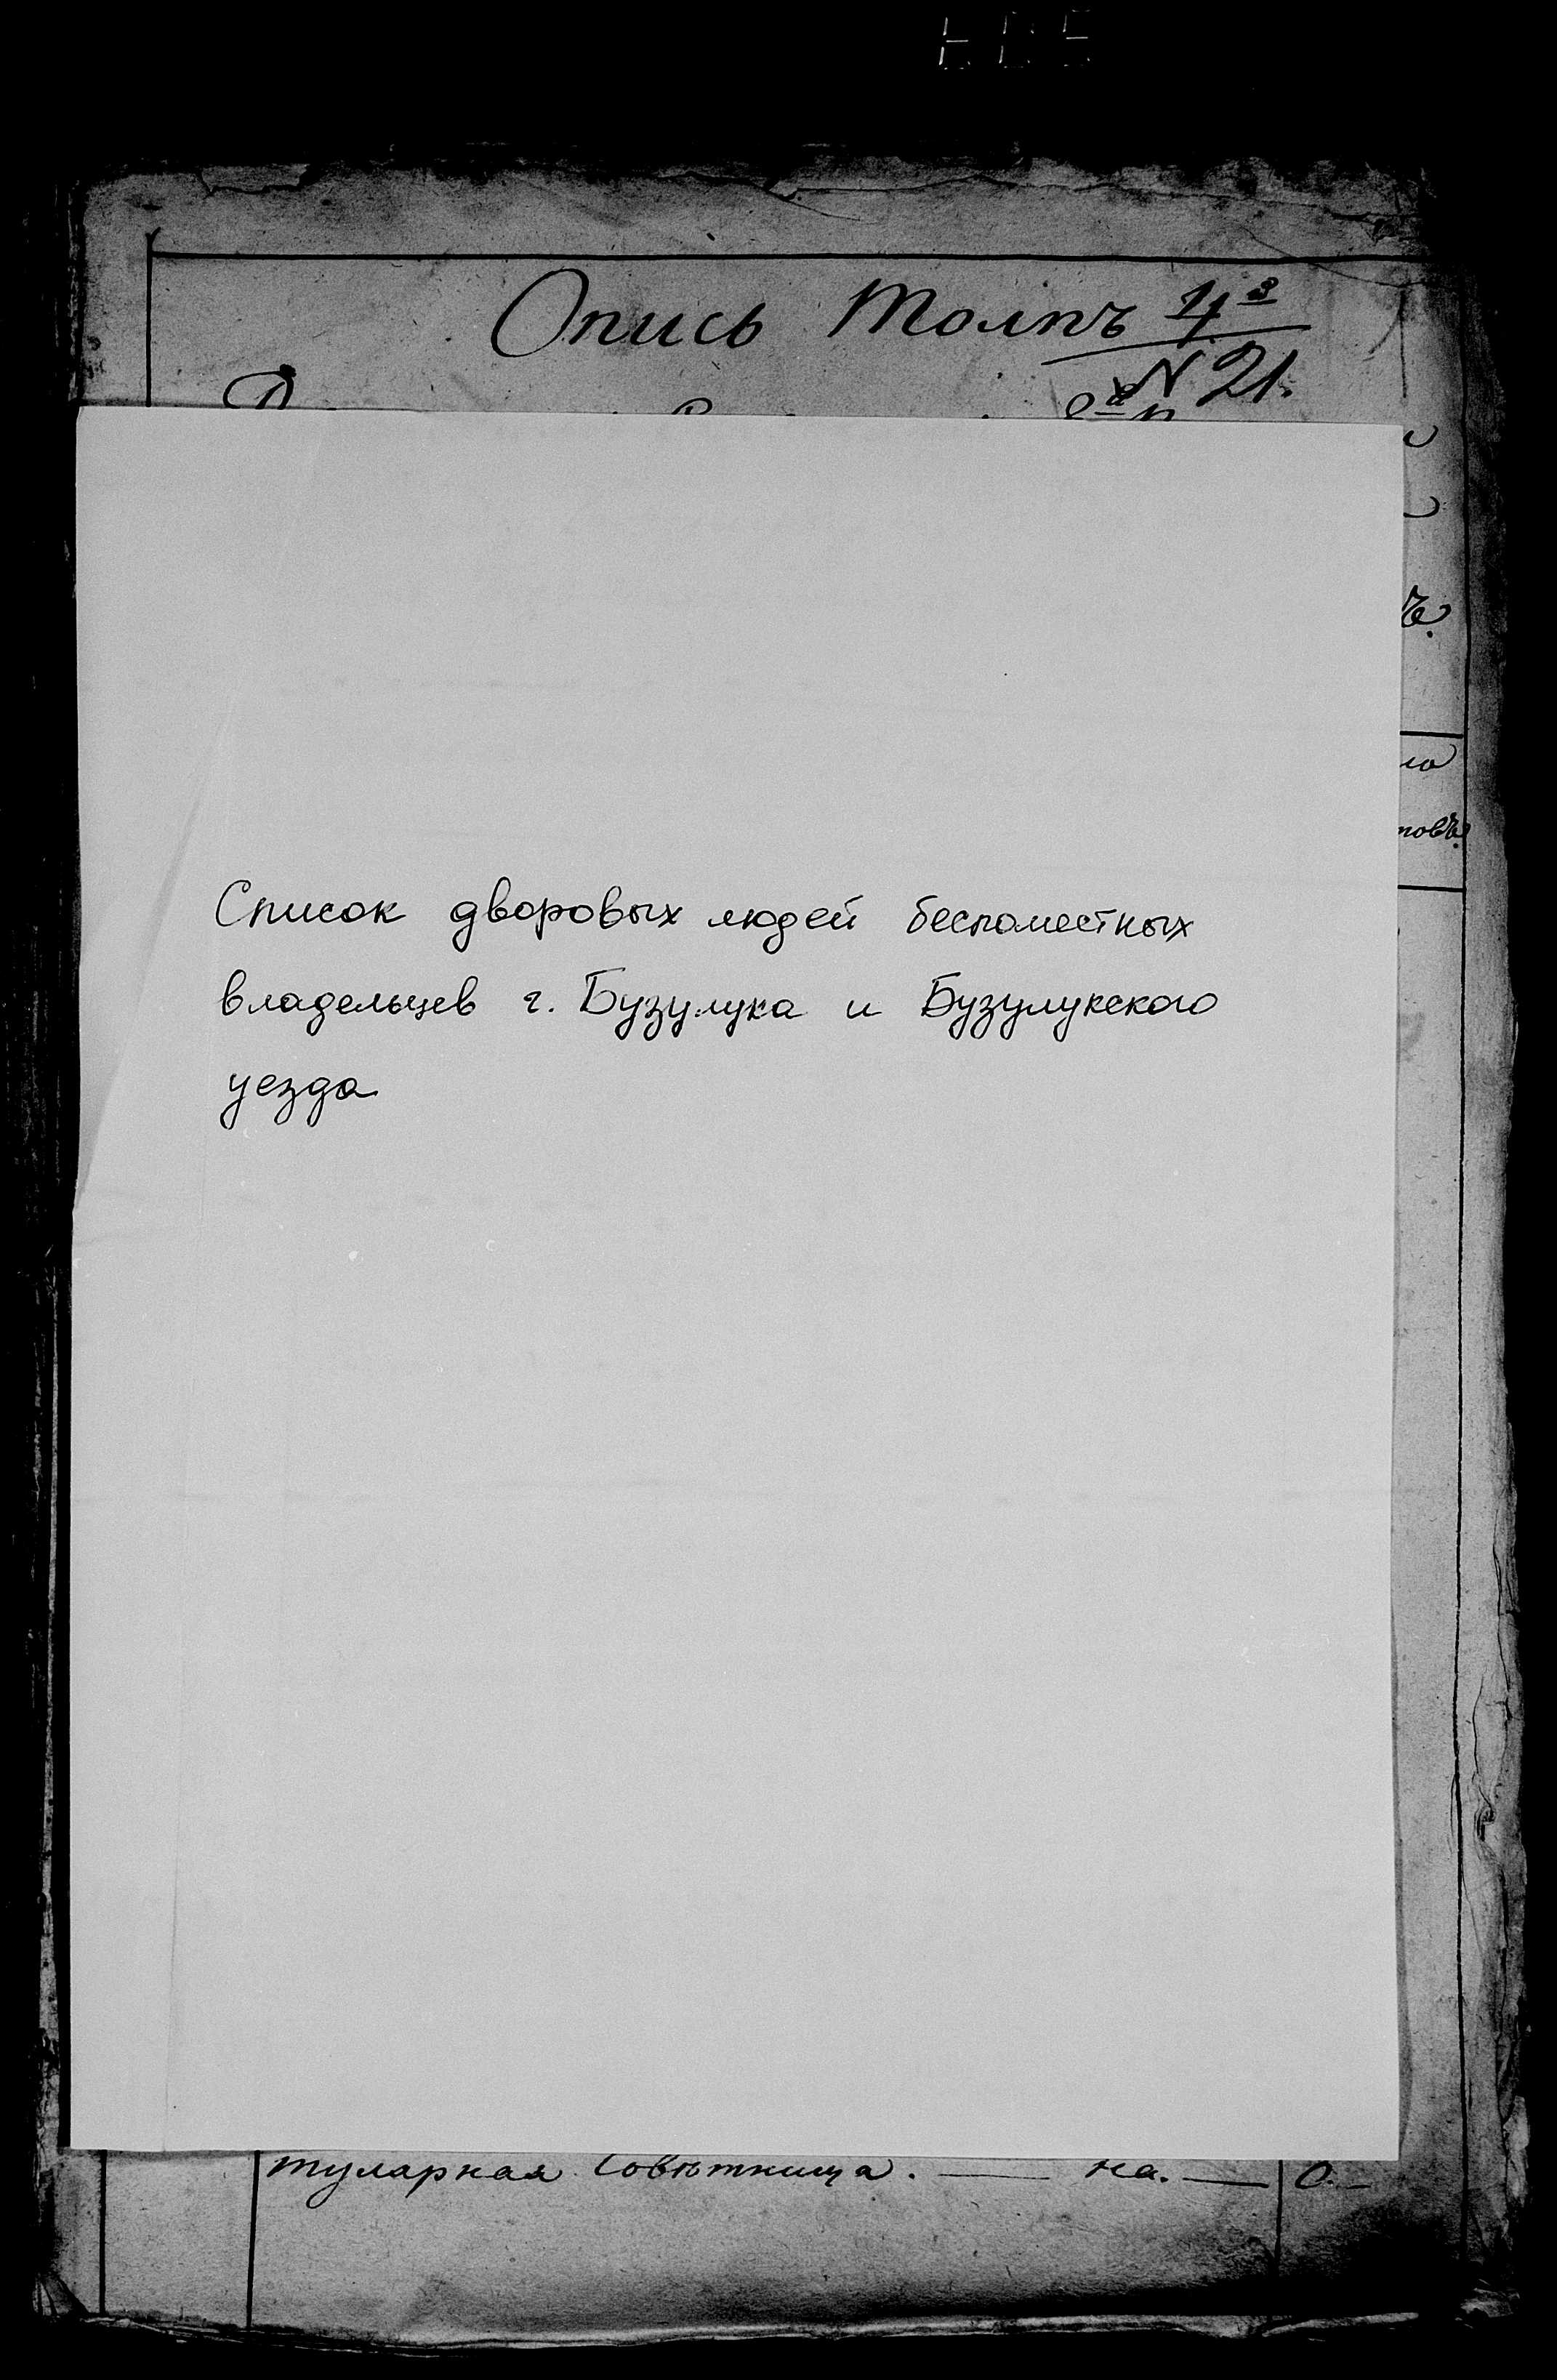 Опись Томпъ 4й
N 21.
Список дворовых людей беспоместных
владельцев г. Бузулука и Бузулукского
уезда
товъ.
тулярная Совѣтница. на. 0.